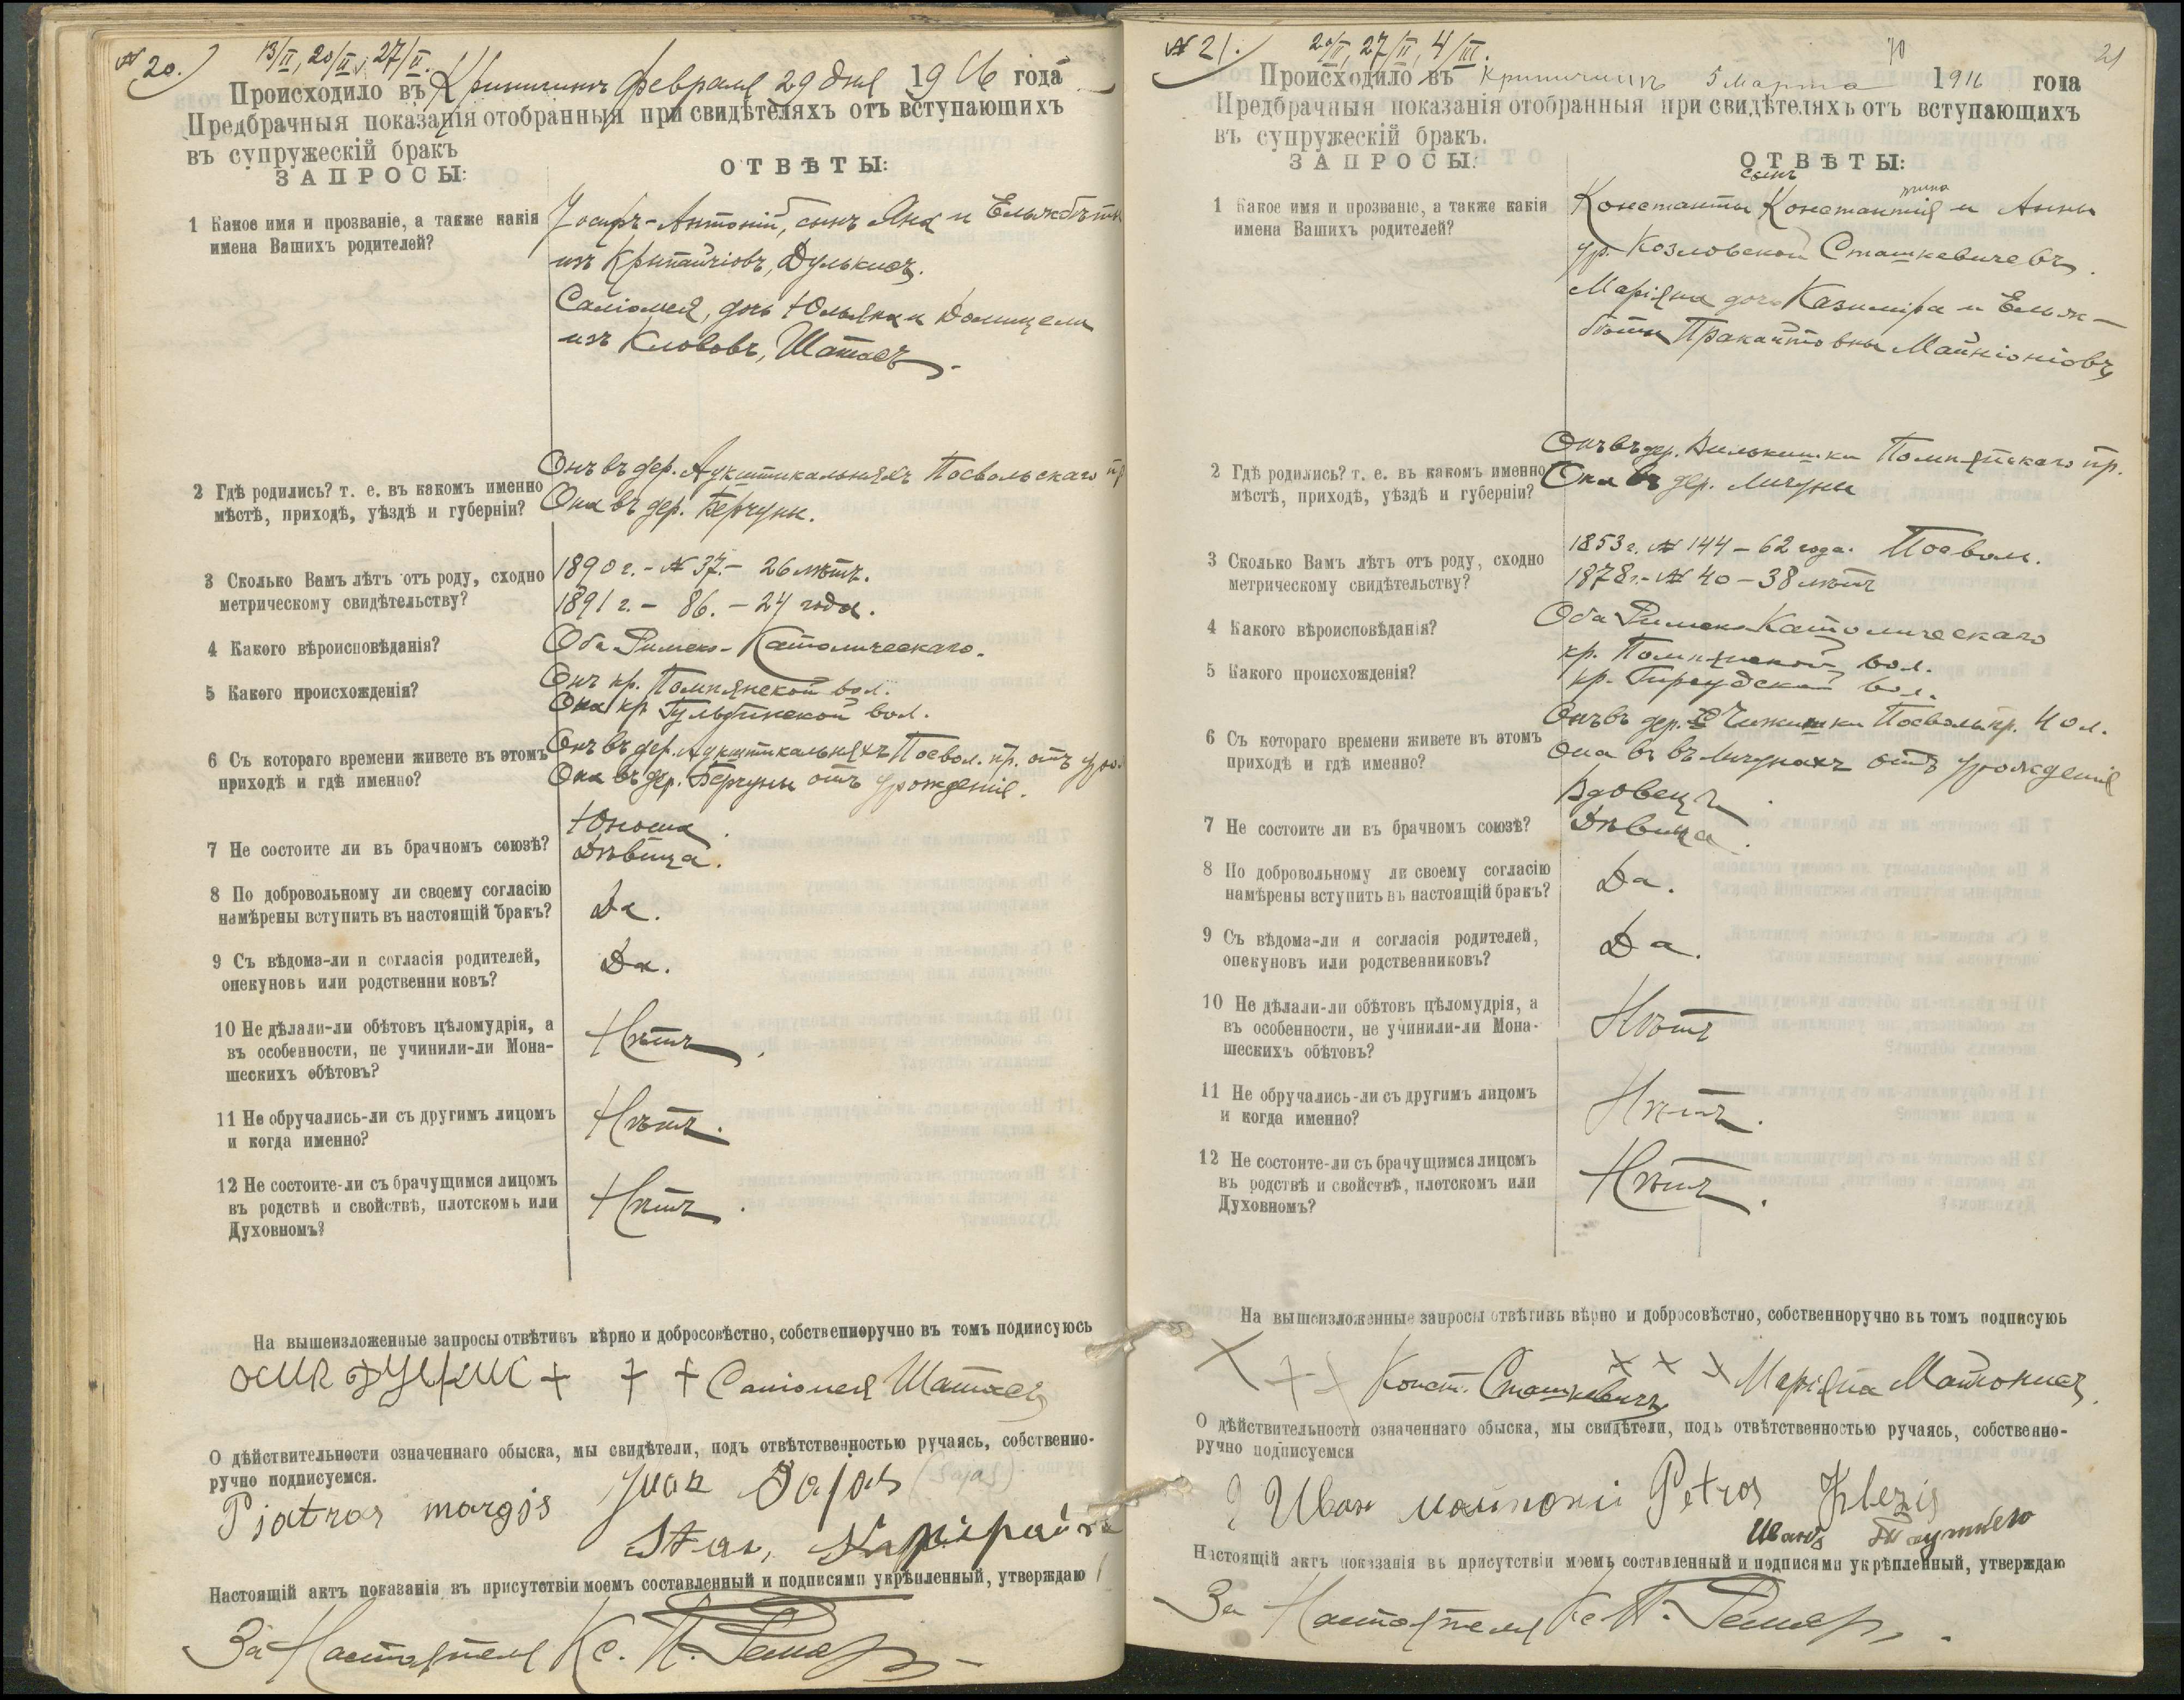 № 20.
13/II, 20/II, 27/II.
Происходило въ Криничинъ Февраля 29 дня 1916 года
Предбрачныя показанія отобранныя при свидѣтеляхъ отъ вступающихъ
въ супружескій бракъ
ЗАПРОСЫ:
ОТВѢТЫ:
1 Какое имя и прозваніе, а также какія
имена Вашихъ родителей?
Іосифъ-Антоній, сынъ Яна и Ельжбѣты
изъ Дулькисъ.
Саломея, дочь Юльяна и Домицели
изъ Шатасъ.
2 Гдѣ родились? т. е. въ какомъ именно
мѣстѣ, приходѣ, уѣздѣ и губерніи?
Онъ въ дер. Аукштикальняхъ Посвольскаго пр
Она въ дер. Берчуны.
3 Сколько Вамъ лѣтъ отъ роду, сходно
метрическому свидѣтельству?
1890 г. - № 37. - 26 лѣтъ.
1891 г. - 86. - 24 года.
4 Какого вѣроисповѣданія?
Оба Римско-Католическаго.
5 Какого происхожденія?
Онъ кр. Помпянской вол.
Она кр. Гульбинской вол.
6 Съ котораго времени живете въ этомъ
приходѣ и гдѣ именно?
Онъ въ дер. Аукштикальняхъ Посвол. пр. отъ
Она въ дер. Берчуны отъ урожденія.
7 Не состоите ли въ брачномъ союзѣ?
Юноша.
Дѣвица.
8 По добровольному ли своему согласію
намѣрены вступить въ настоящій бракъ?
Да.
9 Съ вѣдома-ли и согласія родителей,
опекуновъ или родственни ковъ?
Да.
10 Не дѣлали-ли обѣтовъ цѣломудрія, а
въ особенности, не учинили-ли Мона-
шескихъ обѣтовъ?
Нѣтъ.
11 Не обручались-ли съ другимъ лицомъ
и когда именно?
Нѣтъ.
12 Не состоите-ли съ брачущимся лицомъ
въ родствѣ и свойствѣ, плотскомъ или
Духовномъ?
Нѣтъ.
На вышеизложенные запросы отвѣтивъ вѣрно и добросовѣстно, собственноручно въ томъ подписуюсь
+ + + Саломея Шатасъ
О дѣйствительности означеннаго обыска, мы свидѣтели, подъ отвѣтственностью ручаясь, собственно-
ручно подписуемся.
Pjatras margjs
Настоящій актъ показанія въ присутствіи моемъ составленный и подписями укрѣпленный, утверждаю
За Настоятеля Кс. П.
№ 21.
20/II, 27/II, 4/III.
70
21
Происходило въ Криничинъ 5 Марта 1916 года
Предбрачныя показанія отобранныя при свидѣтеляхъ отъ вступающихъ
въ супружескій бракъ.
ЗАПРОСЫ:
ОТВѢТЫ:
1 Какое имя и прозваніе, а также какія
имена Вашихъ родителей?
сынъ
Константы и Анны
ур. Козловской Сташкевичевъ.
Маріяна дочь Казиміра и Ельж-
бѣты Майніонісовъ
2 Гдѣ родились? т. е. въ какомъ именно
мѣстѣ, приходѣ, уѣздѣ и губерніи?
Онъ въ дер. Вилькишки Помпянскаго пр.
Она въ дер. Личуны
3 Сколько Вамъ лѣтъ отъ роду, сходно
метрическому свидѣтельству?
1853 г. № 144 - 62 года. Посвол.
1878 г. - № 40 - 38 лѣтъ
4 Какого вѣроисповѣданія?
Оба Римско Католическаго
5 Какого происхожденія?
кр. Помпянской вол.
кр. Гирсудской вол.
6 Съ котораго времени живете въ этомъ
приходѣ и гдѣ именно?
Онъ въ дер. Чижишки Посвольк.
она въ въ Личунахъ отъ урожденія
7 Не состоите ли въ брачномъ союзѣ?
Вдовецъ.
Дѣвица.
8 По добровольному ли своему согласію
намѣрены вступить въ настоящій бракъ?
Да.
9 Съ вѣдома-ли и согласія родителей,
опекуновъ или родственниковъ?
Да.
10 Не дѣлали-ли обѣтовъ цѣломудрія, а
въ особенности, не учинили-ли Мона-
шескихъ обѣтовъ?
Нѣтъ
11 Не обручались-ли съ другимъ лицомъ
и когда именно?
Нѣтъ.
12 Не состоите-ли съ брачущимся лицомъ
въ родствѣ и свойствѣ, плотскомъ или
Духовномъ?
Нѣтъ.
На вышеизложенные запросы отвѣтивъ вѣрно и добросовѣстно, собственноручно въ томъ подписуюь
X X X Конст. Сташкевичъ X X X Маріяна
О дѣйствительности означеннаго обыска, мы свидѣтели, подъ отвѣтственностью ручаясь, собственно-
ручно подписуемся
Иван Petros
Иванъ
Настоящій актъ показанія въ присутствіи моемъ составленный и подписями укрѣпленный, утверждаю
За Настоятеля Кс П.